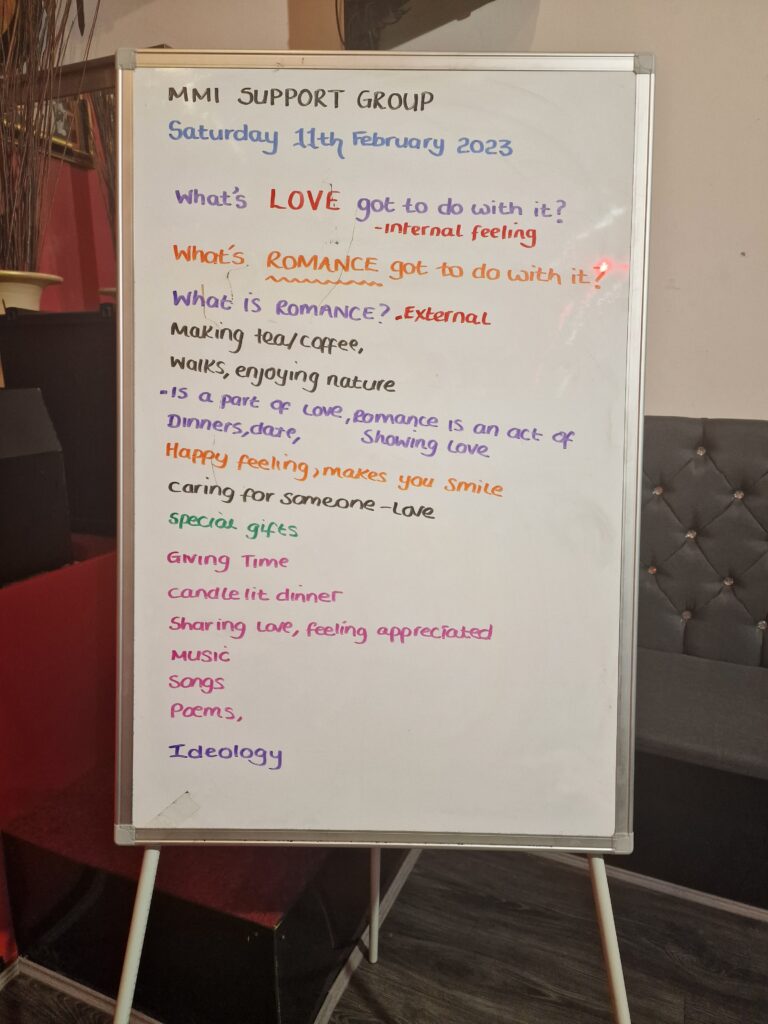 MMI SUPPORT GROUP
Saturday 11th February 2023
What's LOVE got to do with it?
-Internal feeling
What's ROMANCE got to do with it?
What is ROMANCE? .External
Making tea/coffee,
Walks, enjoying nature
-Is a part of love, Romance is an act of
Dinners, date, Showing love
Happy feeling, makes you smile
Caring for someone - Love
Special gifts
Giving Time
Candle lit dinner
Sharing love, feeling appreciated
Music
Songs
Poems,
Ideology